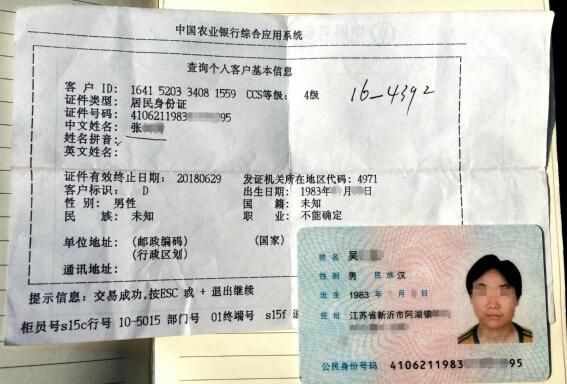 中国农业银行综合应用系统
查询个人客户基本信息
客户 ID: 1641 5203 3408 1559 CCS等级: 4级
16-4392
证件类型: 居民身份证
证件号码: 4106211983 95
中文姓名: 张
姓名拼音:
英文姓名:
证件有效终止日期: 20180629 发证机关所在地区代码: 4971
客户标识: D 出生日期: 1983年 月 日
性 别: 男性 国 籍: 未知
民 族: 未知 职 业: 不能确定
单位地址: (邮政编码) (国家)
(行政区划)
通讯地址:
提示信息: 交易成功,按ESC 或 + 退出继续
柜员号s15c行号 10-5015 部门号 01终端号 s15f
姓名 吴
性别 男 民族 汉
出生 1983 年 月 日
住址 江苏省新沂市阿湖镇
公民身份号码 4106211983 95